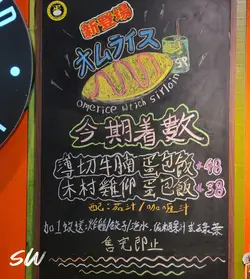 新登場
オムライス
SP
Omerice wrich sirloin
今期着數
薄切牛腩蛋包飯 +48
木村雞柳蛋包飯 +38
配：茄汁/咖喱汁
加1放送：炸雞/餃子/池水
售完即止
SW